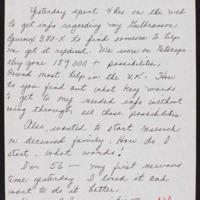 Yesterday spent 4 hrs on the web
to get info regarding my Gulbransen
Equinox 380-X to find someone to help
me get it repaired. We were on Netscape
they gave 189000 + possibilities.
Found most help in the U.K. How
do you find out what key words
to get to my needed info without
going through all those possibilities.
Also wanted to start research
on deceased family. How do I
start. What words?
I'm 56 - my first nervous
time yesterday. I loved it and
want to do it better.